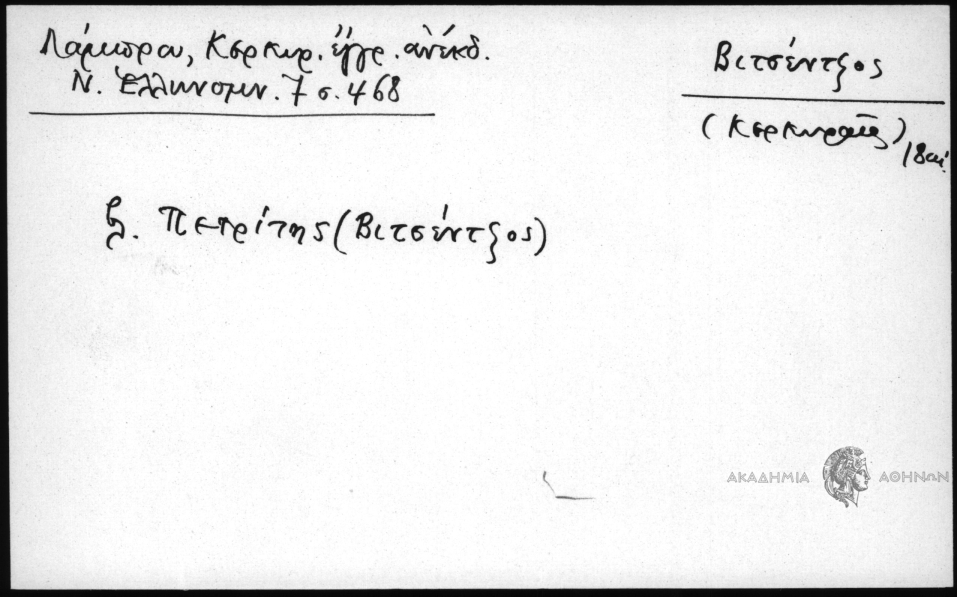 Λάμπρου, Κερκυρ. έγγρ. ανέκδ.
Ν. Ἑλληνομν. 7 σ. 468
Βιτσέντζος
(Κερκυραῖος)
18 αἰ.
βλ. Πετρίτης (Βιτσέντζος)
ΑΚΑΔΗΜΙΑ ΑΘΗΝΩΝ